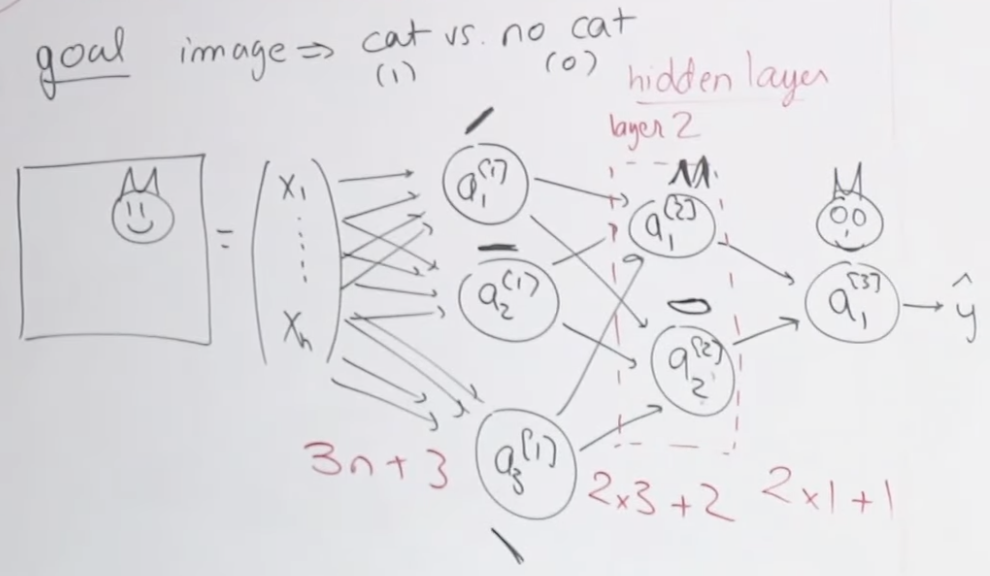 goal image ⇒ cat vs. no cat
(1) (0)
hidden layer
layer 2
x₁
⋮
xₙ
=
a₁^[1]
a₂^[1]
a₃^[1]
a₁^[2]
a₂^[2]
a₁^[3]
ŷ
3n + 3
2x3 + 2
2x1 + 1